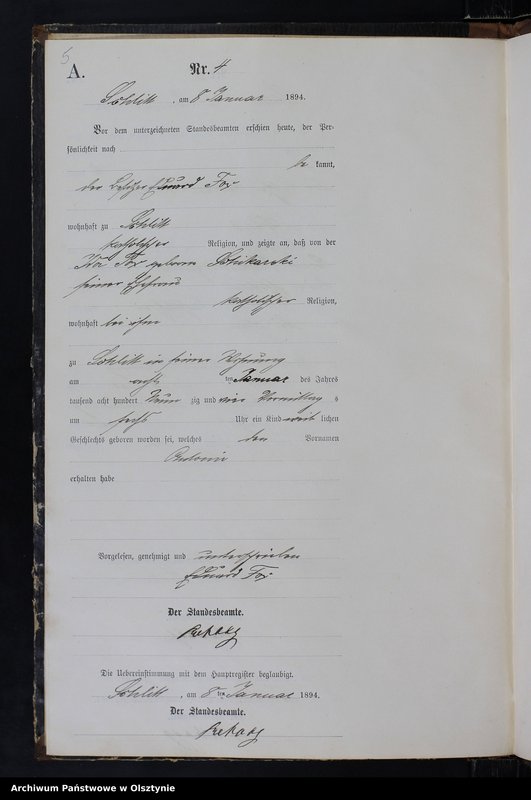 5
A.
Nr. 4
Schlitt, am 8 Januar 1894.
Vor dem unterzeichneten Standesbeamten erschien heute, der Per-
sönlichkeit nach
be kannt,
der Besitzer Eduard Fox
wohnhaft zu Schlitt
katholischer Religion, und zeigte an, daß von der
Fox geborne
seiner Ehefrau
katholischer Religion,
wohnhaft bei ihm
zu Schlitt in seiner Wohnung
am ten Januar des Jahres
tausend acht hundert Neun zig und vier Vormittag s
um sechs Uhr ein Kind weib lichen
Geschlechts geboren worden sei, welches den Vornamen
erhalten habe
Vorgelesen, genehmigt und unterschrieben
Eduard Fox
Der Standesbeamte.
Die Uebereinstimmung mit dem Hauptregister beglaubigt.
Schlitt, am 8 ten Januar 1894.
Der Standesbeamte.
Archiwum Państwowe w Olsztynie